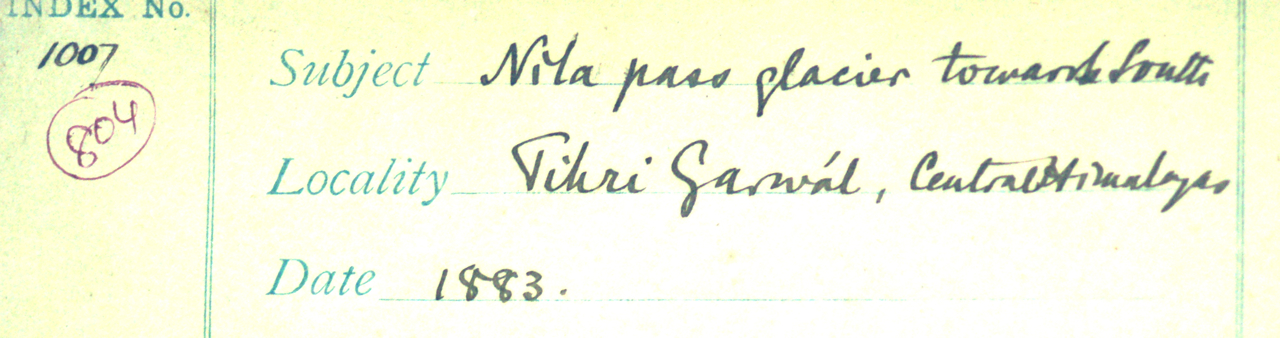 INDEX No.
1007
804
Subject Nila pass glacier towards South
Locality Tihri Garwál, Central Himalayas
Date 1883.